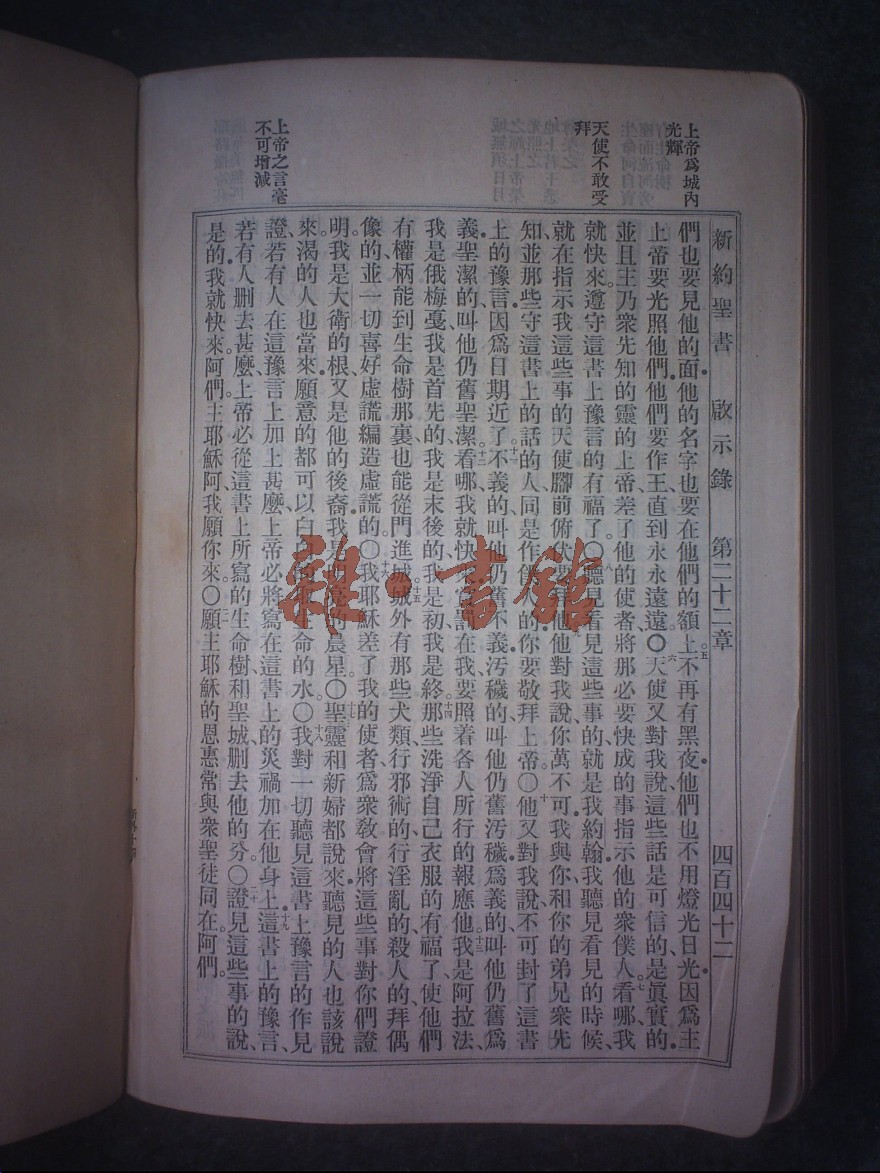 上帝爲城內
光輝
天使不敢受
拜
上帝之言毫
不可增減
新約聖書 啟示錄 第二十二章 四百四十二
們也要見他的面他的名字也要在他們的額上。五不再有黑夜他們也不用燈光日光因爲主
上帝要光照他們他們要作王直到永永遠遠。〇六天使又對我說這些話是可信的是眞實的
並且主乃衆先知的靈的上帝差了他的使者將那必要快成的事指示他的衆僕人。七看哪我
就快來遵守這書上豫言的有福了。〇八聽見看見這些事的就是我約翰我聽見看見的時候、
就在指示我這些事的天使腳前俯伏要拜他他對我說你萬不可我與你和你的弟兄衆先
知、並那些守這書上的話的人同是作僕人的你要敬拜上帝。〇十他又對我說不可封了這書
上的豫言因爲日期近了。十一不義的叫他仍舊不義汚穢的叫他仍舊汚穢爲義的叫他仍舊爲
義聖潔的叫他仍舊聖潔。十二看哪我就快來賞罰在我要照着各人所行的報應他。十三我是阿拉法、
我是俄梅戞我是首先的我是末後的我是初我是終。十四那些洗淨自己衣服的有福了使他們
有權柄能到生命樹那裏也能從門進城。十五城外有那些犬類行邪術的行淫亂的殺人的拜偶
像的並一切喜好虛謊編造虛謊的。〇十六我耶穌差了我的使者爲衆敎會將這些事對你們證
明我是大衛的根又是他的後裔我是明亮的晨星。〇十七聖靈和新婦都說來聽見的人也該說
來渴的人也當來願意的都可以白白的取生命的水。〇十八我對一切聽見這書上豫言的作見
證若有人在這豫言上加上甚麼上帝必將寫在這書上的災禍加在他身上。十九這書上的豫言、
若有人刪去甚麼上帝必從這書上所寫的生命樹和聖城刪去他的分。〇二十證見這些事的說、
是的我就快來阿們主耶穌阿我願你來。〇願主耶穌的恩惠常與衆聖徒同在阿們。
雜·書館